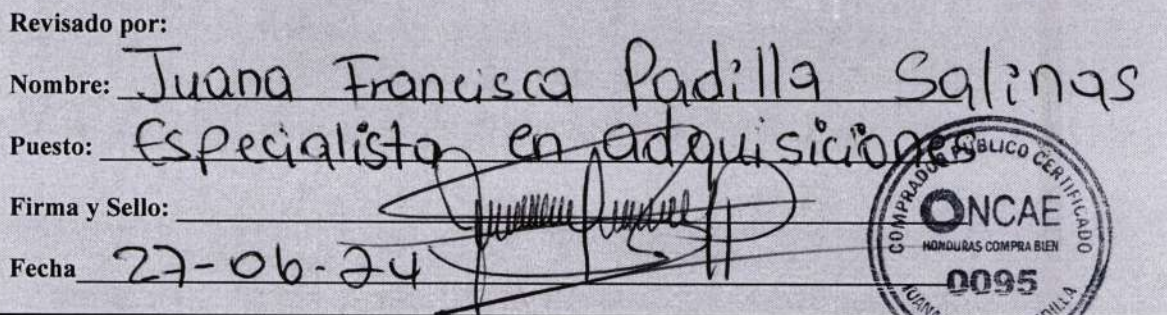 Revisado por:
Nombre: Juana Francisca Padilla Salinas
Puesto: Especialista en adquisiciones
Firma y Sello:
Fecha 27-06-24
COMPRADOR PÚBLICO CERTIFICADO
ONCAE
HONDURAS COMPRA BIEN
0095
JUANA PADILLA